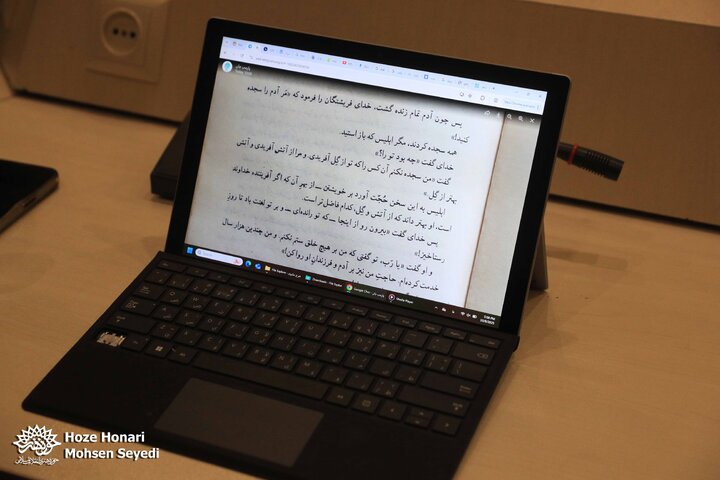 پس چون آدم تمام زنده گشت، خدای فریشتگان را فرمود که «مَر آدم را سجده
کنید!»
همه سجده کردند، مگر ابلیس که باز استید.
خدای گفت «چه بود تو را؟»
گفت «من سجده نکنم آن کس را که تو از گِل آفریدی. و مرا از آتش آفریدی و آتش
بهتر از گِل.»
ابلیس به این سخن حُجّت آورد بر خویشتن — از بهرِ آن که اگر آفریننده خداوند
است، او بهتر داند که از آتش و گِل، کدام فاضل‌تر است.
پس خدای گفت «بیرون رو از اینجا — که تو رانده‌ای — و بر تو لعنت باد تا روزِ
رستاخیز!»
و او گفت «یا رَب، تو گفتی که من بر هیچ خلق ستم نکنم. و من چندین هزار سال
خدمت کرده‌ام. حاجتِ من نیز بر آدم و فرزندانِ او روا کن!»
Hoze Honari
Mohsen Seyedi